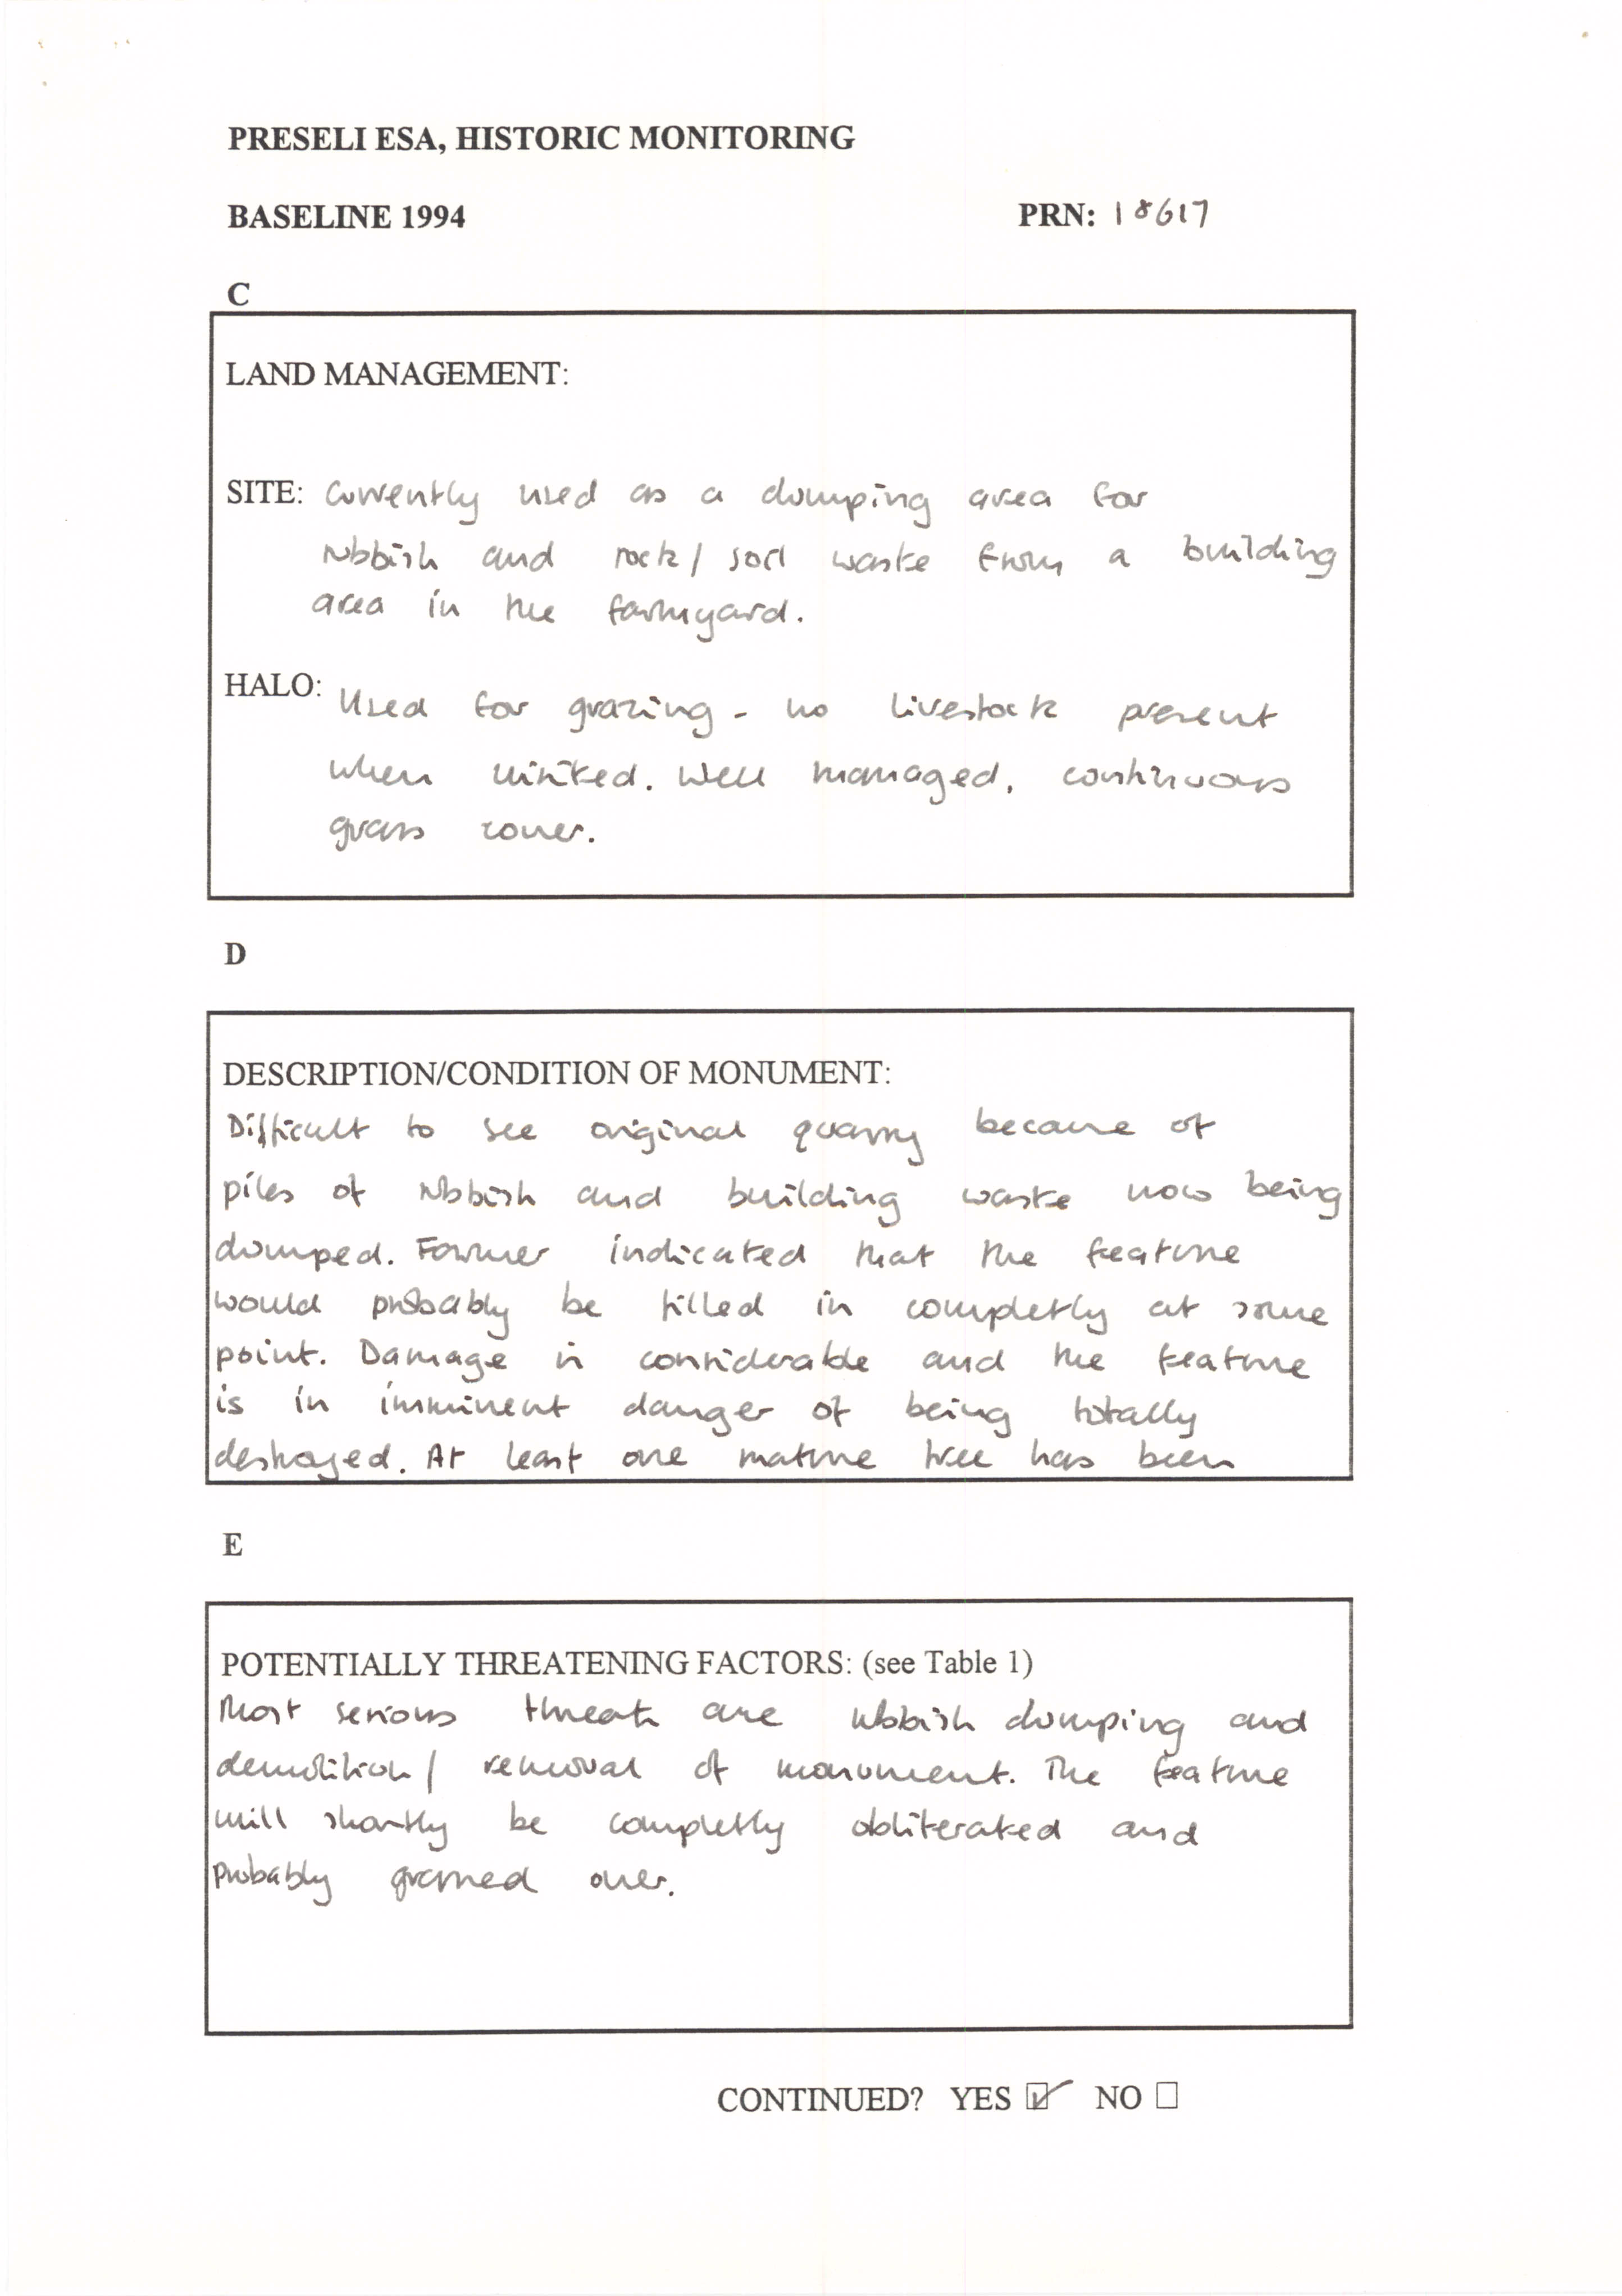 PRESELI ESA, HISTORIC MONITORING
BASELINE 1994 PRN: 18617
C
LAND MANAGEMENT:
SITE: Currently used as a dumping area for
rubbish and rock/ soil waste from a building
area in the farmyard.
HALO: Used for grazing - no livestock present
when visited. Well managed, continuous
grass cover.
D
DESCRIPTION/CONDITION OF MONUMENT:
Difficult to see original quarry because of
piles of rubbish and building waste now being
dumped. Farmer indicated that the feature
would probably be filled in completly at some
point. Damage is considerable and the feature
is in imminent danger of being totally
destroyed. At least one mature tree has been
E
POTENTIALLY THREATENING FACTORS: (see Table 1)
Most serious threats are rubbish dumping and
demolition/ removal of monument. The feature
will shortly be completly obliterated and
probably grassed over.
CONTINUED? YES ☑ NO ☐